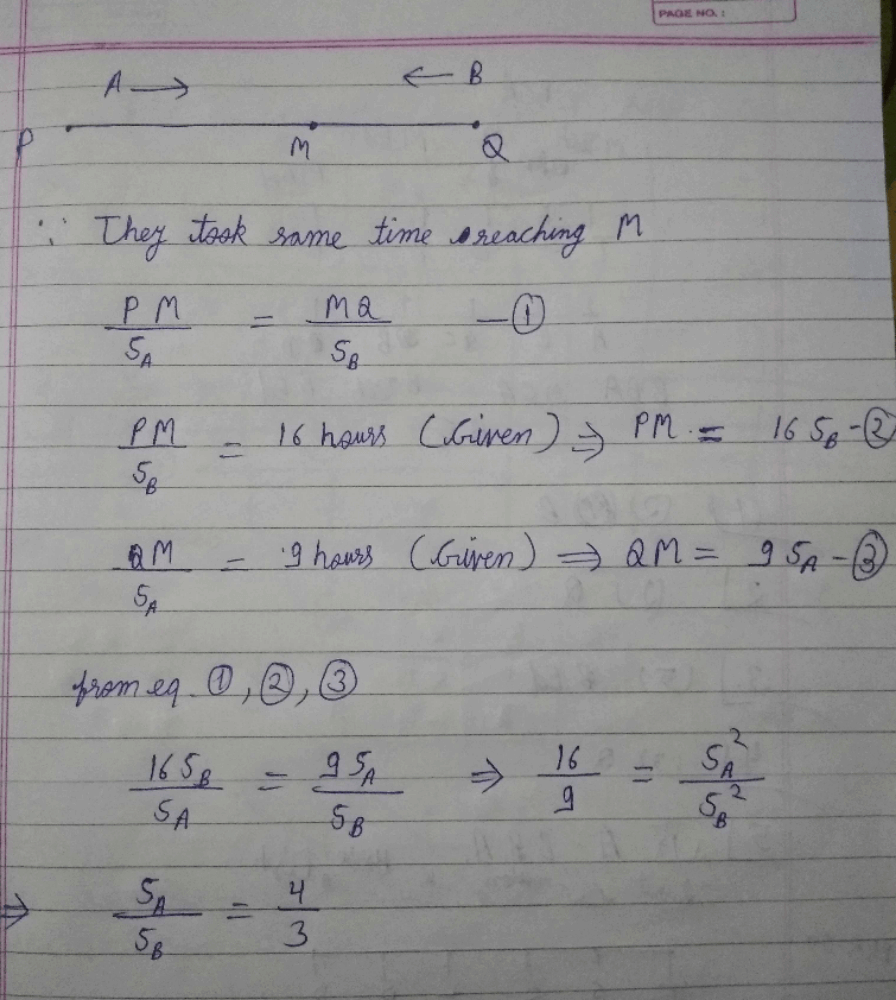 PAGE NO. :
A → ← B
P M Q
∵ They took same time reaching M
PM/S_A = MQ/S_B — ①
PM/S_B = 16 hours (Given) ⇒ PM = 16 S_B - ②
QM/S_A = 9 hours (Given) ⇒ QM = 9 S_A - ③
from eq. ①, ②, ③
16 S_B/S_A = 9 S_A/S_B ⇒ 16/9 = S_A²/S_B²
⇒ S_A/S_B = 4/3